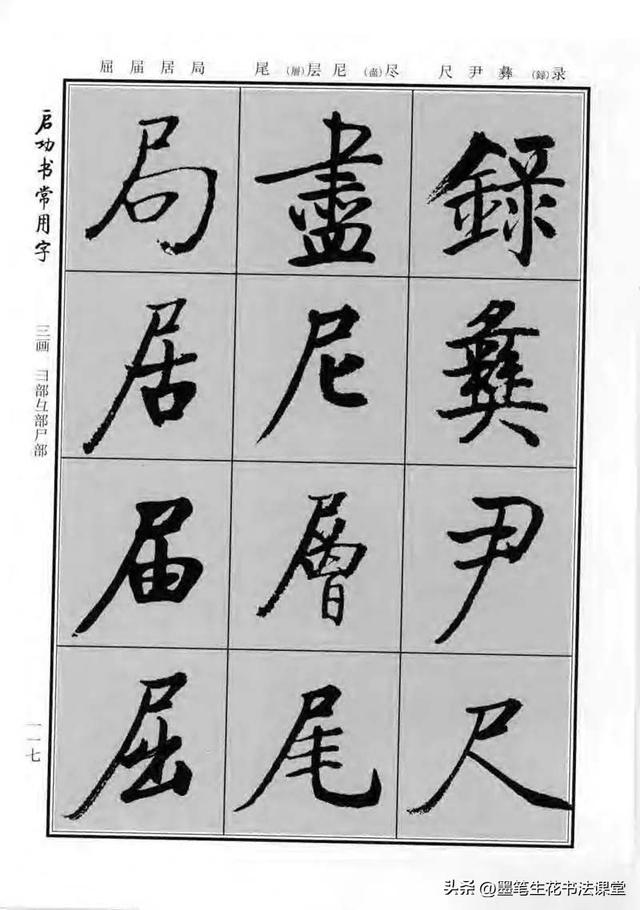 录(録)彝尹尺 尽(盡)尼层(層)尾 局居届屈
録彝尹尺
盡尼層尾
局居届屈
启功书常用字
三画 彐部彑部尸部
一一七
头条@墨笔生花书法课堂